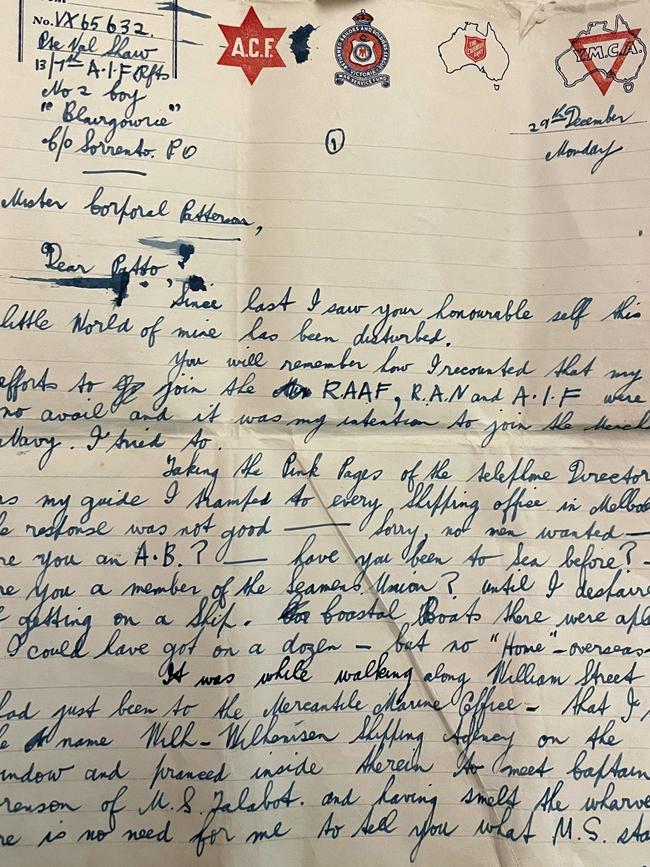 No. VX65632.
Pte Val Shaw
13/7th A.I.F Rft.
No 2 Coy
"Blairgowrie"
C/o Sorrento. P O
A.C.F.
RETURNED SAILORS AND SOLDIERS
VICTORIA
WAR SERVICE FUND
THE SALVATION ARMY
Y.M.C.A.
1
29th December
Monday
Mister Corporal Patterson,
Dear Patto,
Since last I saw your honourable self this
little World of mine has been disturbed.
You will remember how I recounted that my
efforts to join the RAAF, R.A.N and A.I.F were
no avail and it was my intention to join the Merch
Navy. I tried to.
Taking the Pink Pages of the telephone Director
as my guide I tramped to every Shipping office in Melbo
e response was not good — sorry, no men wanted —
re you an A.B.? — have you been to Sea before? —
re you a member of the Seamens Union? until I despaire
f getting on a Ship. Coastal Boats there were
I could have got on a dozen — but no "Home" - overseas
It was while walking along William Street
had just been to the Mercantile Marine Office — that I
e name Wilh - Wilhemsen Shipping Agency on the
indow and pranced inside therein to meet Captain
renson of M.S. Talabot. and having smelt the wharve
re is no need for me to tell you what M.S. sta